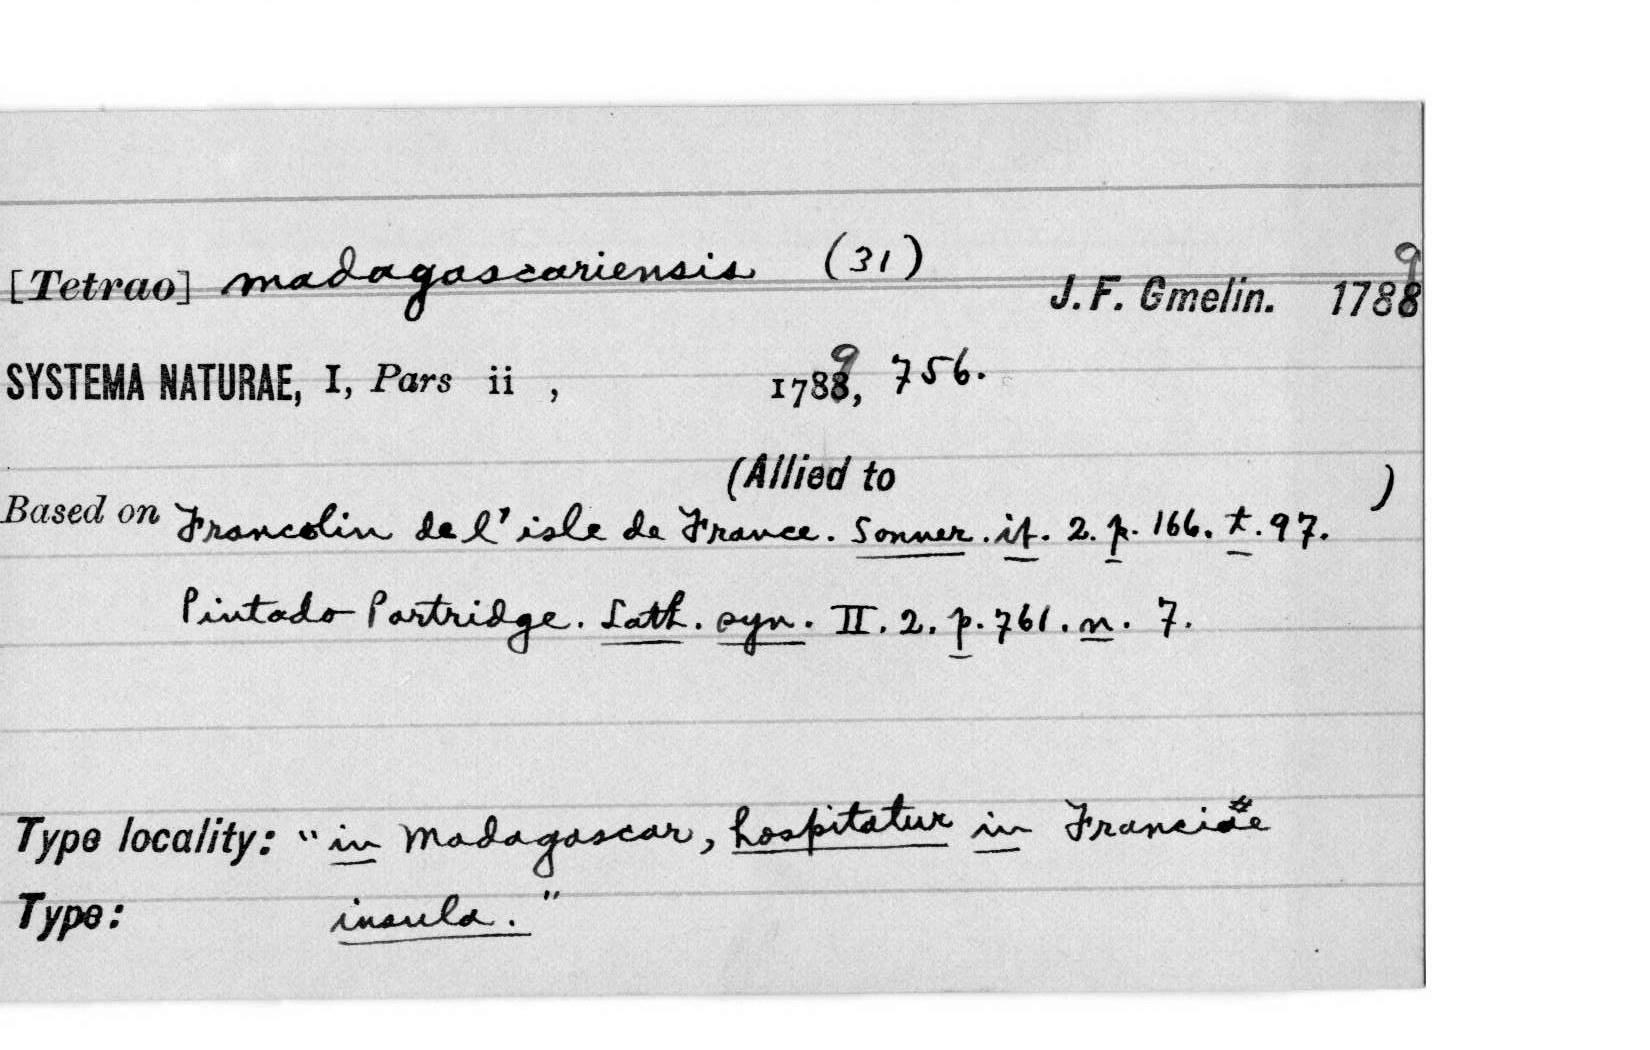 [Tetrao] madagascariensis (31)
J. F. Gmelin. 1789
SYSTEMA NATURAE, I, Pars ii , 1789, 756.
(Allied to )
Based on Francolin de l'isle de France. Sonner. it. 2. p. 166. t. 97.
Pintado Partridge. Lath. syn. II. 2. p. 761. n. 7.
Type locality: "in Madagascar, hospitatur in Franciae
Type: insula."